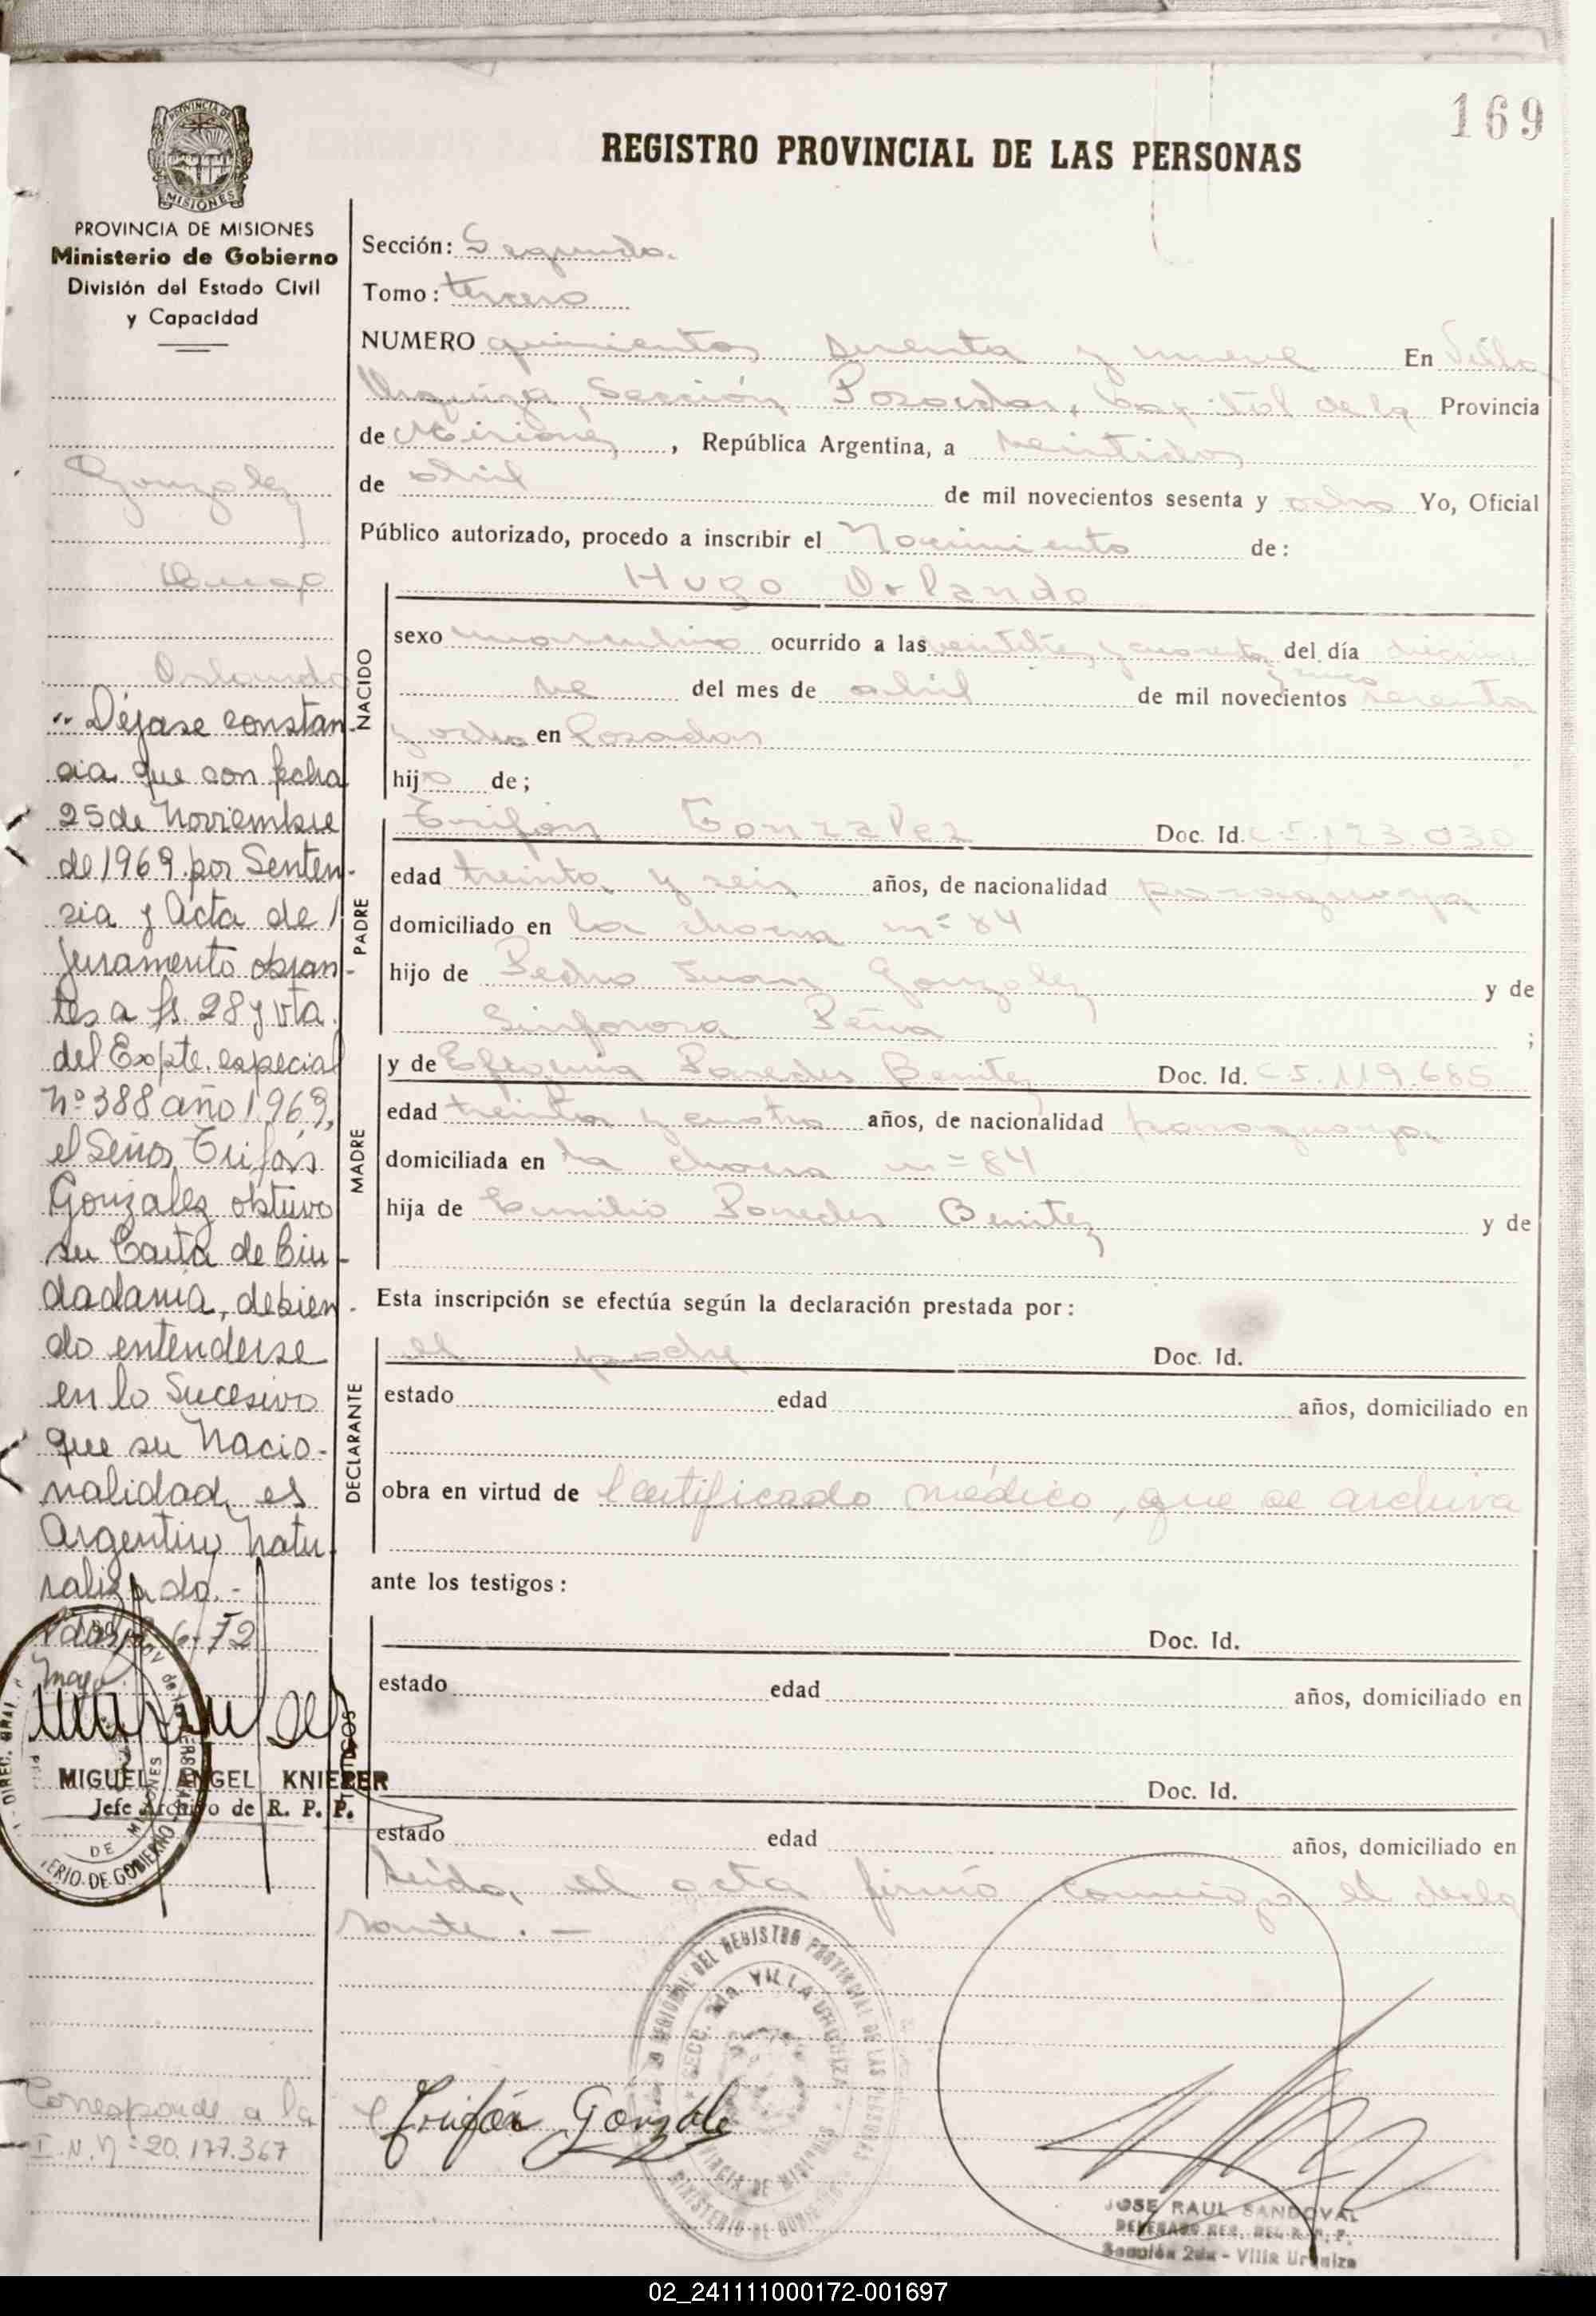 169
REGISTRO PROVINCIAL DE LAS PERSONAS
PROVINCIA DE
MISIONES
PROVINCIA DE MISIONES
Ministerio de Gobierno
División del Estado Civil
y Capacidad
Gonzalez
Hugo
Orlando
"Déjase constan-
cia que con fecha
25 de Noviembre
de 1969 por Senten-
cia y Acta de
Juramento obran-
tes a fs. 28 y vta.
del Expte. especial
Nº 388 año 1969,
el Señor Trifón
Gonzalez obtuvo
su Carta de Ciu-
dadanía, debien-
do entenderse
en lo Sucesivo
que su Nacio-
nalidad es
Argentino Natu-
ralizado.-
6-72
MIGUEL ANGEL KNIEPER
Jefe Archivo de R. P. P.
Corresponde a la
I.N.Nº 20.177.367
Sección: Segunda.
Tomo: tercero
NUMERO quinientos sesenta y nueve En Villa
Urquiza, Sección Posadas, Capital de la Provincia
de Misiones, República Argentina, a veintidos
de abril de mil novecientos sesenta y ocho Yo, Oficial
Público autorizado, procedo a inscribir el Nacimiento de:
NACIDO
Hugo Orlando
sexo masculino ocurrido a las veintitres y cuarenta y cinco del día diecinue
ve del mes de abril de mil novecientos sesenta
y ocho en Posadas
hijo de;
PADRE
Trifón Gonzalez Doc. Id. C.I. 123.030
edad treinta y seis años, de nacionalidad paraguaya
domiciliado en la chacra nº 84
hijo de Pedro Juan Gonzalez y de
Sinforosa Peña ;
MADRE
y de Efigenia Paredes Benitez Doc. Id. C.I. 119.685
edad treinta y cuatro años, de nacionalidad paraguaya
domiciliada en la chacra nº 84
hija de Emilio Paredes Benitez y de
Esta inscripción se efectúa según la declaración prestada por:
DECLARANTE
el padre Doc. Id.
estado edad años, domiciliado en
obra en virtud de certificado médico, que se archiva
ante los testigos:
TESTIGOS
Doc. Id.
estado edad años, domiciliado en
Doc. Id.
estado edad años, domiciliado en
Leída, el acta firmó conmigo el decla
rante.-
Trifón Gonzalez
REGIONAL DEL REGISTRO PROVINCIAL DE LAS PERSONAS
SECC. 2da. VILLA URQUIZA
MINISTERIO DE GOBIERNO
JOSE RAUL SANDOVAL
DELEGADO REG. DEL R. P. P.
Sección 2da - Villa Urquiza
02_241111000172-001697